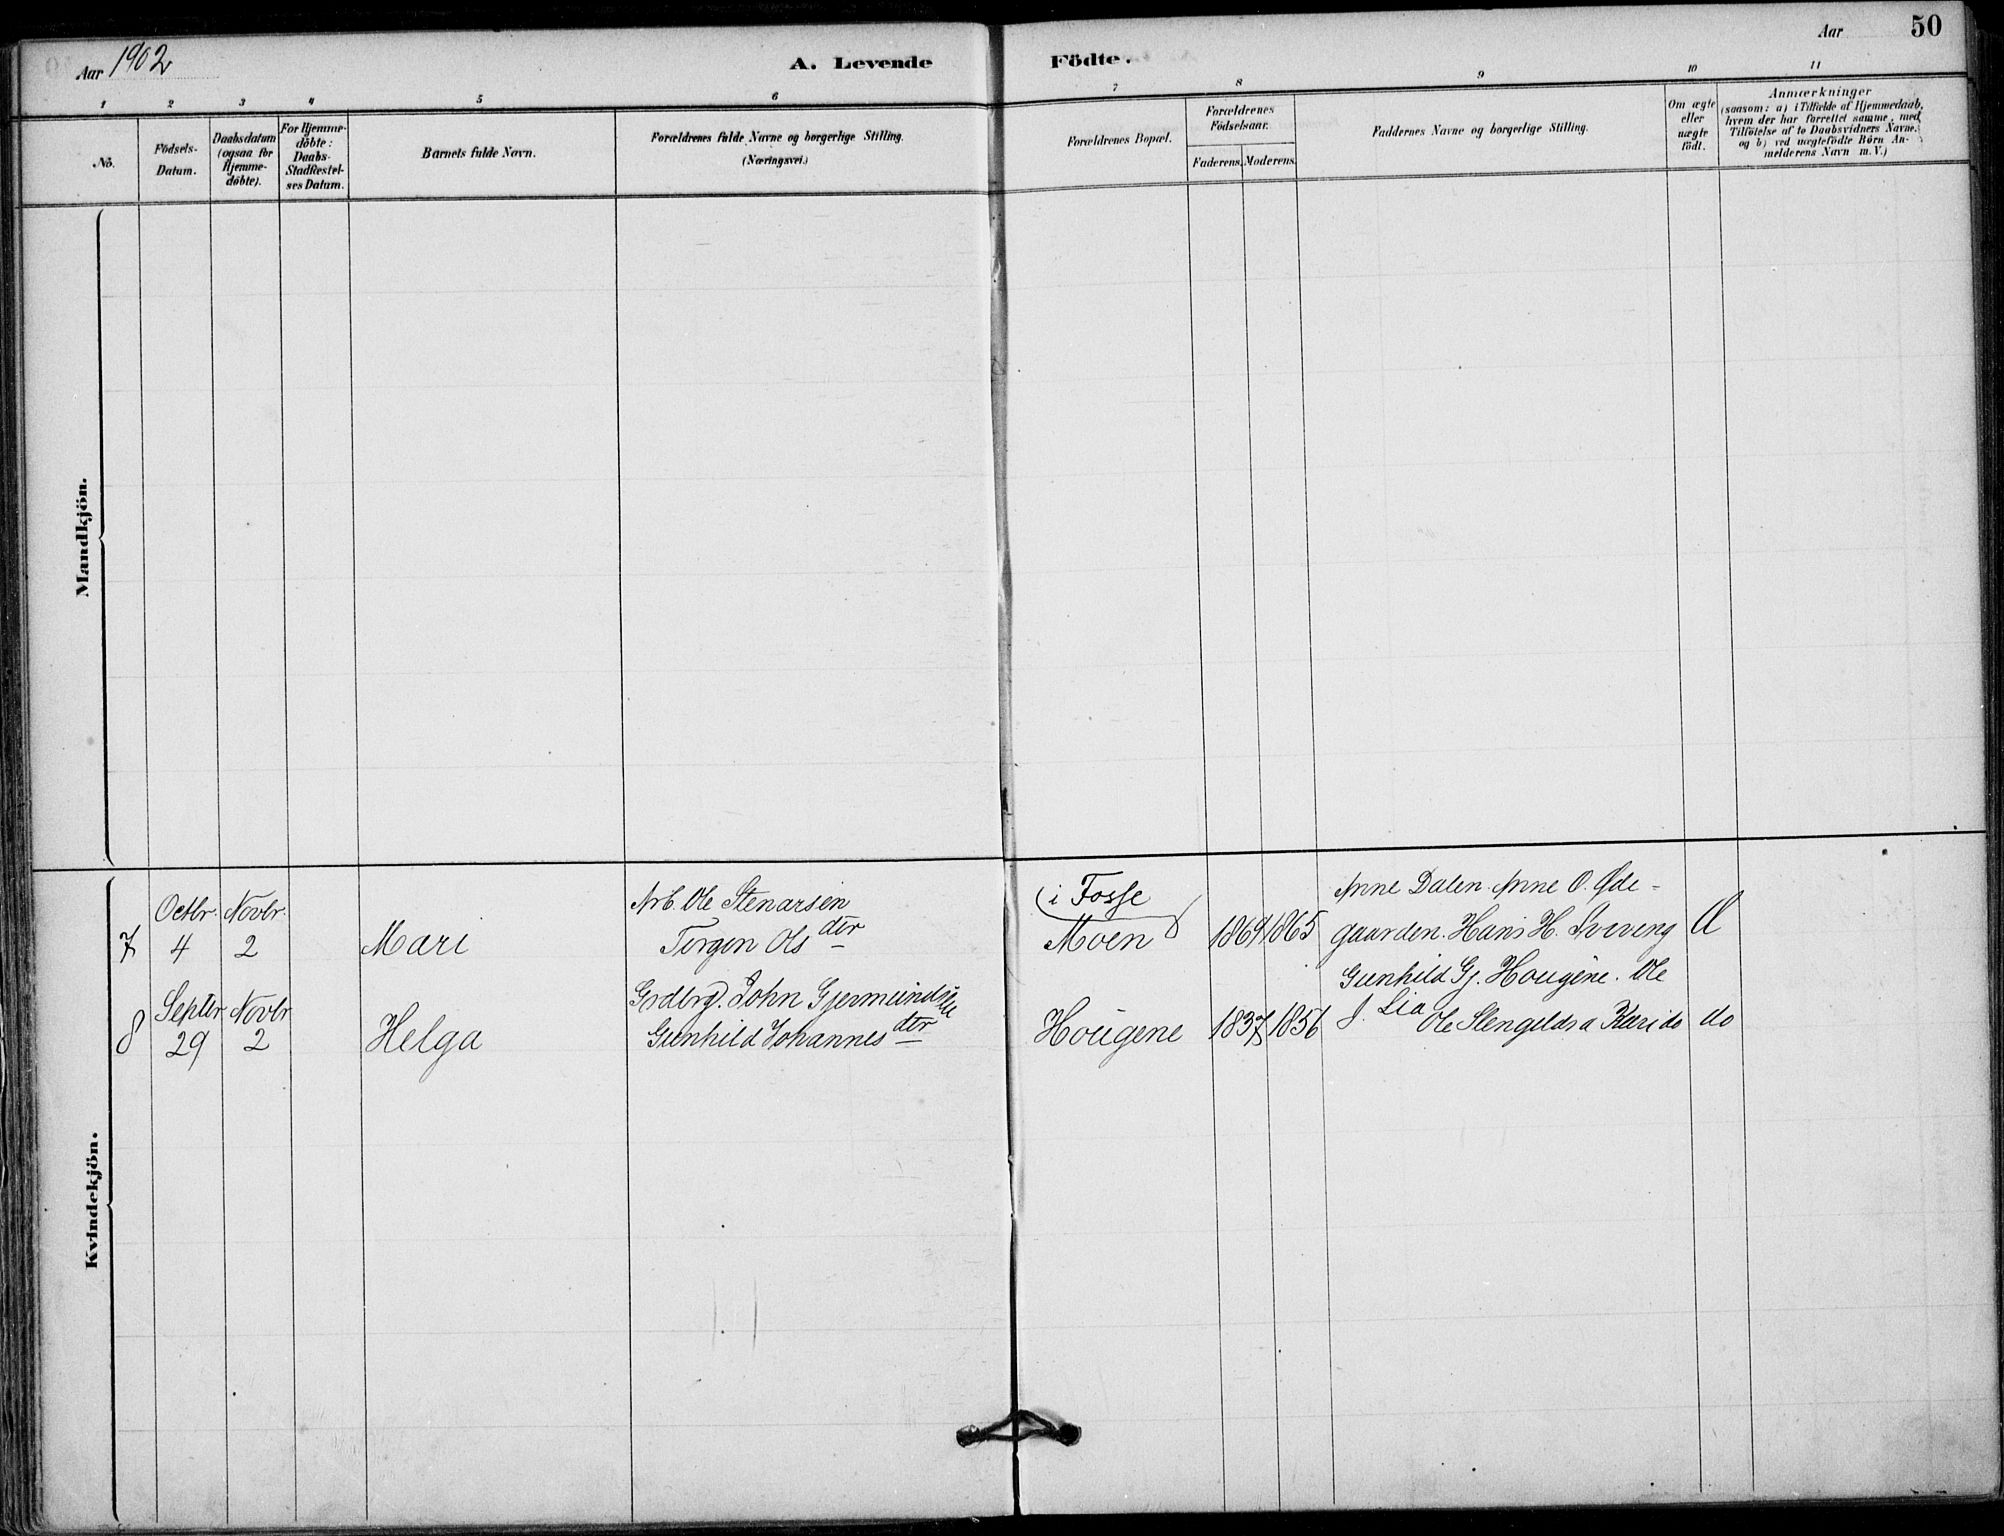 Aar 1902
A. Levende Födte.
Aar
50
1 2 3 4 5 6 7 8 9 10 11
No.
Födsels-
Datum.
Daabsdatum
(ogsaa for
Hjemme-
döbte).
For Hjemme-
döbte:
Daabs-
Stadfestel-
ses Datum.
Barnets fulde Navn.
Forældrenes fulde Navne og borgerlige Stilling.
(Næringsvei.)
Forældrenes Bopæl.
Forældrenes
Födselsaar.
Faderens. Moderens.
Faddernes Navne og borgerlige Stilling.
Om ægte
eller
uægte
födt.
Anmærkninger
(saasom: a) i Tilfælde af Hjemmedaab,
hvem der har forrettet samme, med
Tilföielse af to Daabsvidners Navne.
og b) ved uægtefödte Börn An-
melderens Navn m.V.)
Mandkjön.
Kvindekjön.
7
Octbr.
4
Novbr.
2
Mari
Arb. Ole Stenarsen
Torgon Olsder
(i Fosse
Moen
1869 1865
Anne Dalen. Anne O. Øde-
gaarden. Hans H.
Æ
8
Septbr
29
Novbr
2
Helga
Grdbrg. John Gjermundsen
Gunhild Johannesder
Hougene
1837 1856
Gunhild Gj. Hougene. Ole
J. Lia Ole Stengelsd a Kari do
do